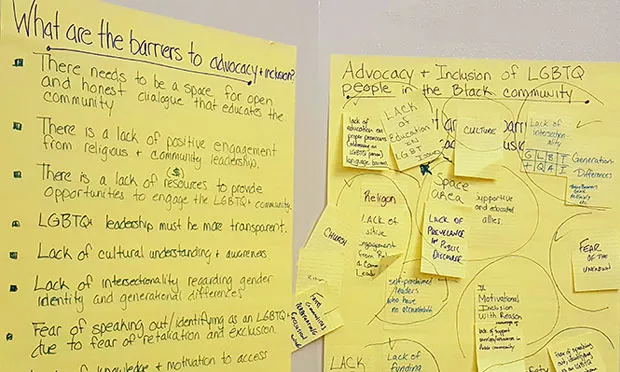 What are the barriers to advocacy + inclusion?
There needs to be a space for open
and honest dialogue that educates the
community
There is a lack of positive engagement
from religious + community leadership.
($)
There is a lack of resources to provide
opportunities to engage the LGBTQ+ community.
LGBTQ+ leadership must be more transparent.
Lack of cultural understanding + awareness
Lack of intersectionality regarding gender
identity and generational differences
Fear of speaking out/identifying as an LGBTQ
due to fear of retaliation and exclusion.
knowledge + motivation to access
Advocacy + Inclusion of LGBTQ
people in the Black community
lack of
education on
proper pronouns
language barriers
LACK
OF
Education
IN
LGBT
Issues
CULTURE
Lack of
intersection-
ality
G L B T
+ Q A I
Generation
Differences
Religion
LACK OF
Space
area
LACK OF
PREVELANCE
IN PUBLIC
DISCOURSE
supportive
and educated
allies.
CHURCH
FEAR
OF THE
UNKNOWN
self-proclaimed
leaders
who have
no accountability
Motivational
Inclusion
With Reason
lack of support
LACK
Lack of
funding
Safety
Fear of speaking
out, identifying